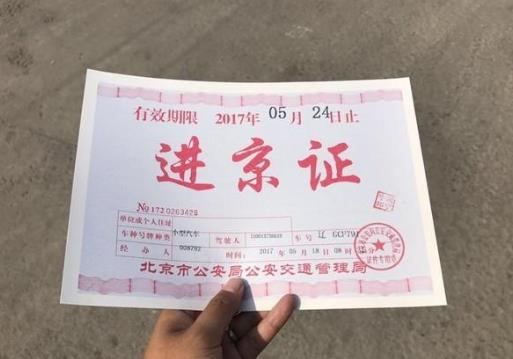 有效期限 2017年 05月 24日止
进京证
№1720263428
单位或个人住址
车种号牌种类 小型汽车 驾驶人 车号 辽
经办人 008792 时间: 2017 年 05 月 18日 08时 分
北京市公安局公安交通管理局